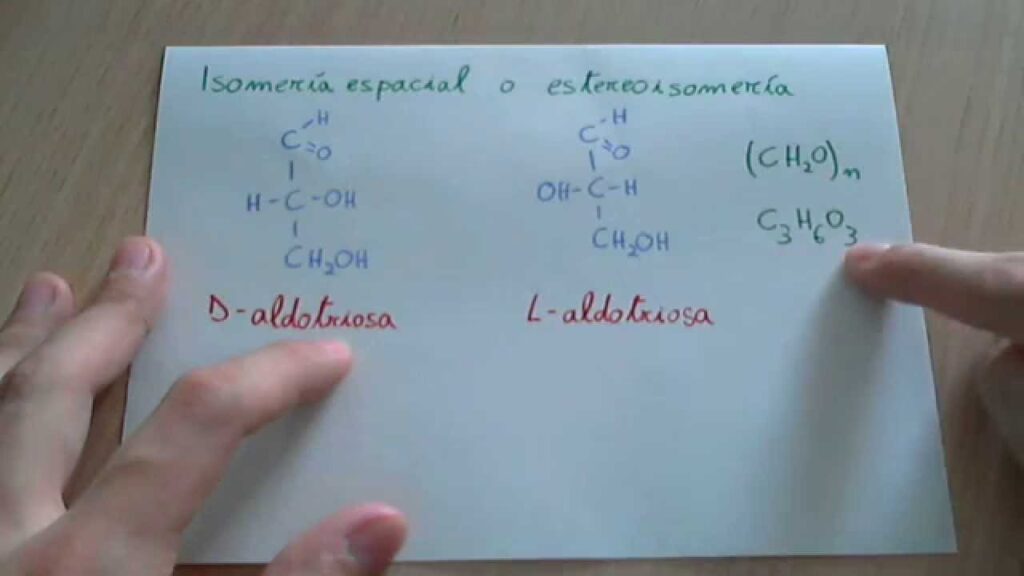 Isomería espacial o estereoisomería
H
C=O
H-C-OH
CH₂OH
D-aldotriosa
H
C=O
OH-C-H
CH₂OH
L-aldotriosa
(CH₂O)ₙ
C₃H₆O₃